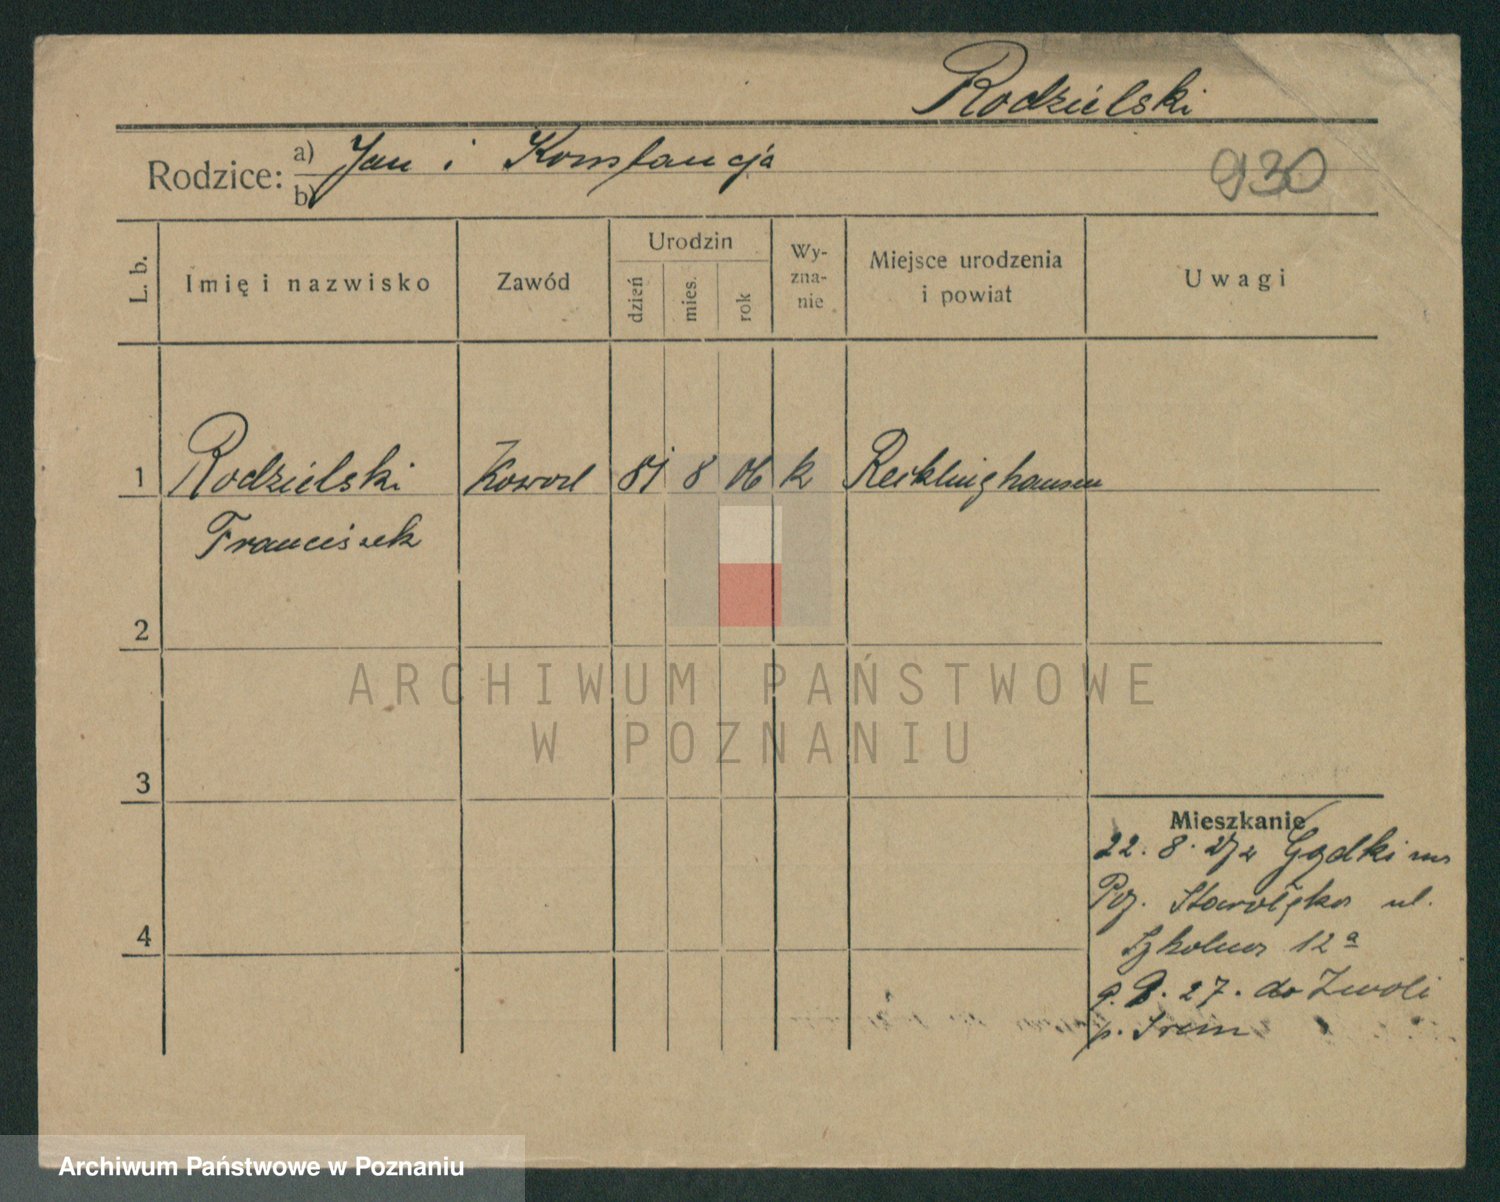 Rodzielski
Rodzice: a) Jan i Konstancja
b)
930
L. b.
Imię i nazwisko
Zawód
Urodzin
dzień
mies.
rok
Wy-
zna-
nie
Miejsce urodzenia
i powiat
Uwagi
1 Rodzielski Kowal 8 06 k Recklinghausen
Franciszek
2
3
4
Mieszkanie
22. 8. 27 z Gądki
Poz. Starołęka ul.
Szkolna 12a
27. do Zwoli
p. Śrem
ARCHIWUM PAŃSTWOWE
W POZNANIU
Archiwum Państwowe w Poznaniu